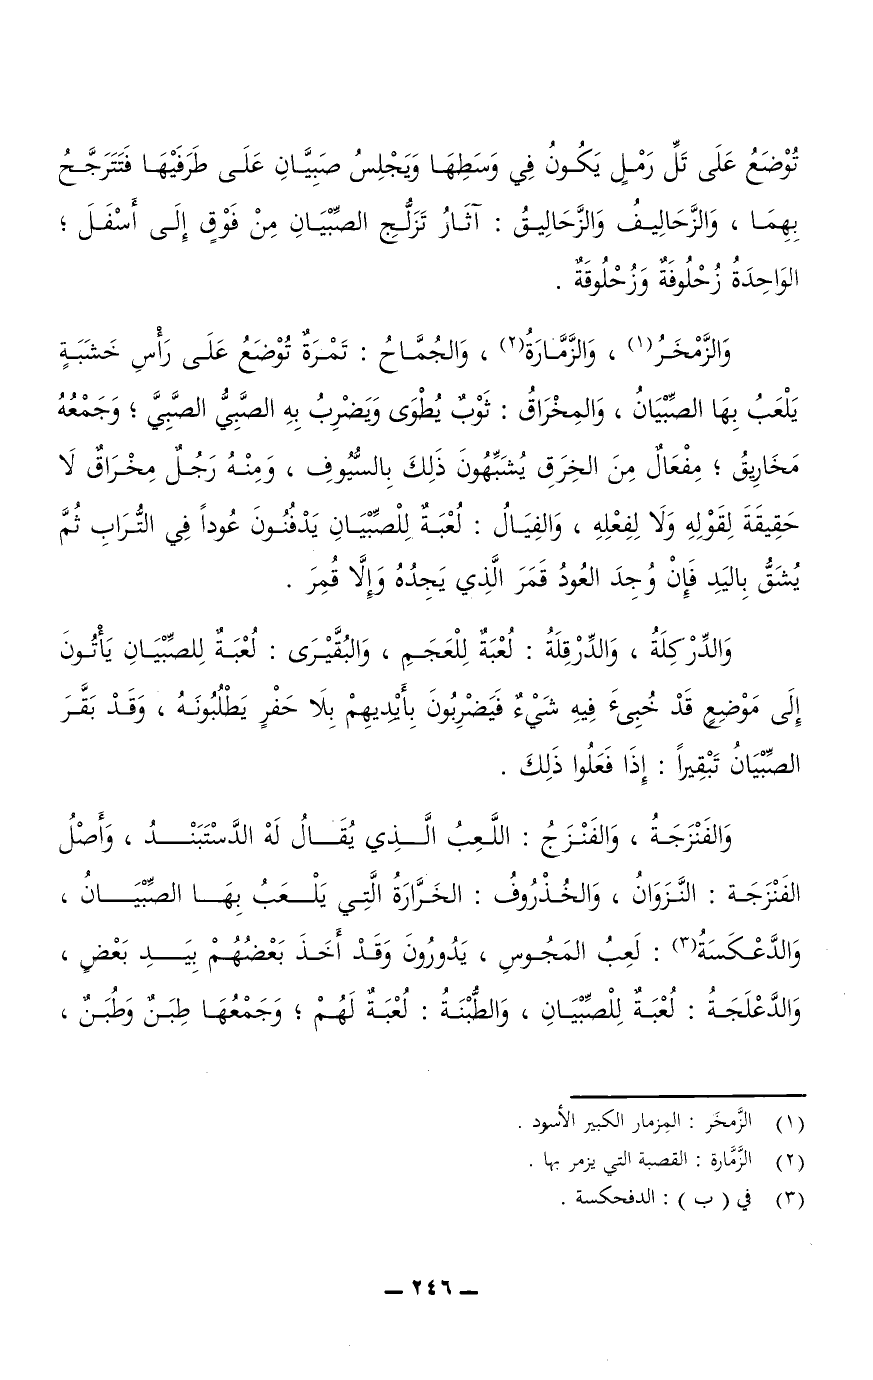 تُوْضَعُ عَلَى تَلِّ رَمْلٍ يَكُونُ فِي وَسَطِهَا وَيَجْلِسُ صَبِيَّانِ عَلَى طَرَفَيْهَا فَتَتَرَجَّحُ
بِهِمَا ، وَالزَّحَالِيفُ وَالزَّحَالِيقُ : آثَارُ تَزَلُّجِ الصِّبْيَانِ مِنْ فَوْقٍ إِلَى أَسْفَلَ ؛
الوَاحِدَةُ زُحْلُوفَةٌ وَزُحْلُوقَةٌ .
وَالزَّمْخَرُ(١) ، وَالزَّمَّارَةُ(٢) ، وَالجُمَّاحُ : تَمْرَةٌ تُوْضَعُ عَلَى رَأْسِ خَشَبَةٍ
يَلْعَبُ بِهَا الصِّبْيَانُ ، وَالمِخْرَاقُ : ثَوْبٌ يُطْوَى وَيَضْرِبُ بِهِ الصَّبِيُّ الصَّبِيَّ ؛ وَجَمْعُهُ
مَخَارِيقُ ؛ مِفْعَالٌ مِنَ الخِرَقِ يُشَبِّهُونَ ذَلِكَ بِالسُّيُوفِ ، وَمِنْهُ رَجُلٌ مِخْرَاقٌ لَا
حَقِيقَةَ لِقَوْلِهِ وَلَا لِفِعْلِهِ ، وَالفِيَالُ : لُعْبَةٌ لِلْصِّبْيَانِ يَدْفُنُونَ عُوداً فِي التُّرَابِ ثُمَّ
يُشَقُّ بِاليَدِ فَإِنْ وُجِدَ العُودُ قَمَرَ الَّذِي يَجِدُهُ وَإِلَّا قُمِرَ .
وَالدِّرْكِلَةُ ، وَالدِّرْقِلَةُ : لُعْبَةٌ لِلْعَجَمِ ، وَالبُقَّيْرَى : لُعْبَةٌ لِلصِّبْيَانِ يَأْتُونَ
إِلَى مَوْضِعٍ قَدْ خُبِىءَ فِيهِ شَيْءٌ فَيَضْرِبُونَ بِأَيْدِيهِمْ بِلَا حَفْرٍ يَطْلُبُونَهُ ، وَقَدْ بَقَّرَ
الصِّبْيَانُ تَبْقِيراً : إِذَا فَعَلُوا ذَلِكَ .
وَالفَنْزَجَةُ ، وَالفَنْزَجُ : اللَّعِبُ الَّذِي يُقَالُ لَهْ الدَّسْتَبَنْدُ ، وَأَصْلُ
الفَنْزَجَة : النَّزَوَانُ ، وَالخُذْرُوفُ : الخَرَّارَةُ الَّتِي يَلْعَبُ بِهَا الصِّبْيَانُ ،
وَالدَّعْكَسَةُ(٣) : لَعِبُ المَجُوسِ ، يَدُورُونَ وَقَدْ أَخَذَ بَعْضُهُمْ بِيَدِ بَعْضٍ ،
وَالدَّعْلَجَةُ : لُعْبَةٌ لِلْصِّبْيَانِ ، وَالطُّبْنَةُ : لُعْبَةٌ لَهُمْ ؛ وَجَمْعُهَا طِبَنٌ وَطُبَنٌ ،
(١) الزَّمخَر : المِزمار الكبير الأسود .
(٢) الزَّمَّارة : القصبة التي يزمر بها .
(٣) في ( ب ) : الدفحكسة .
– ٢٤٦ –